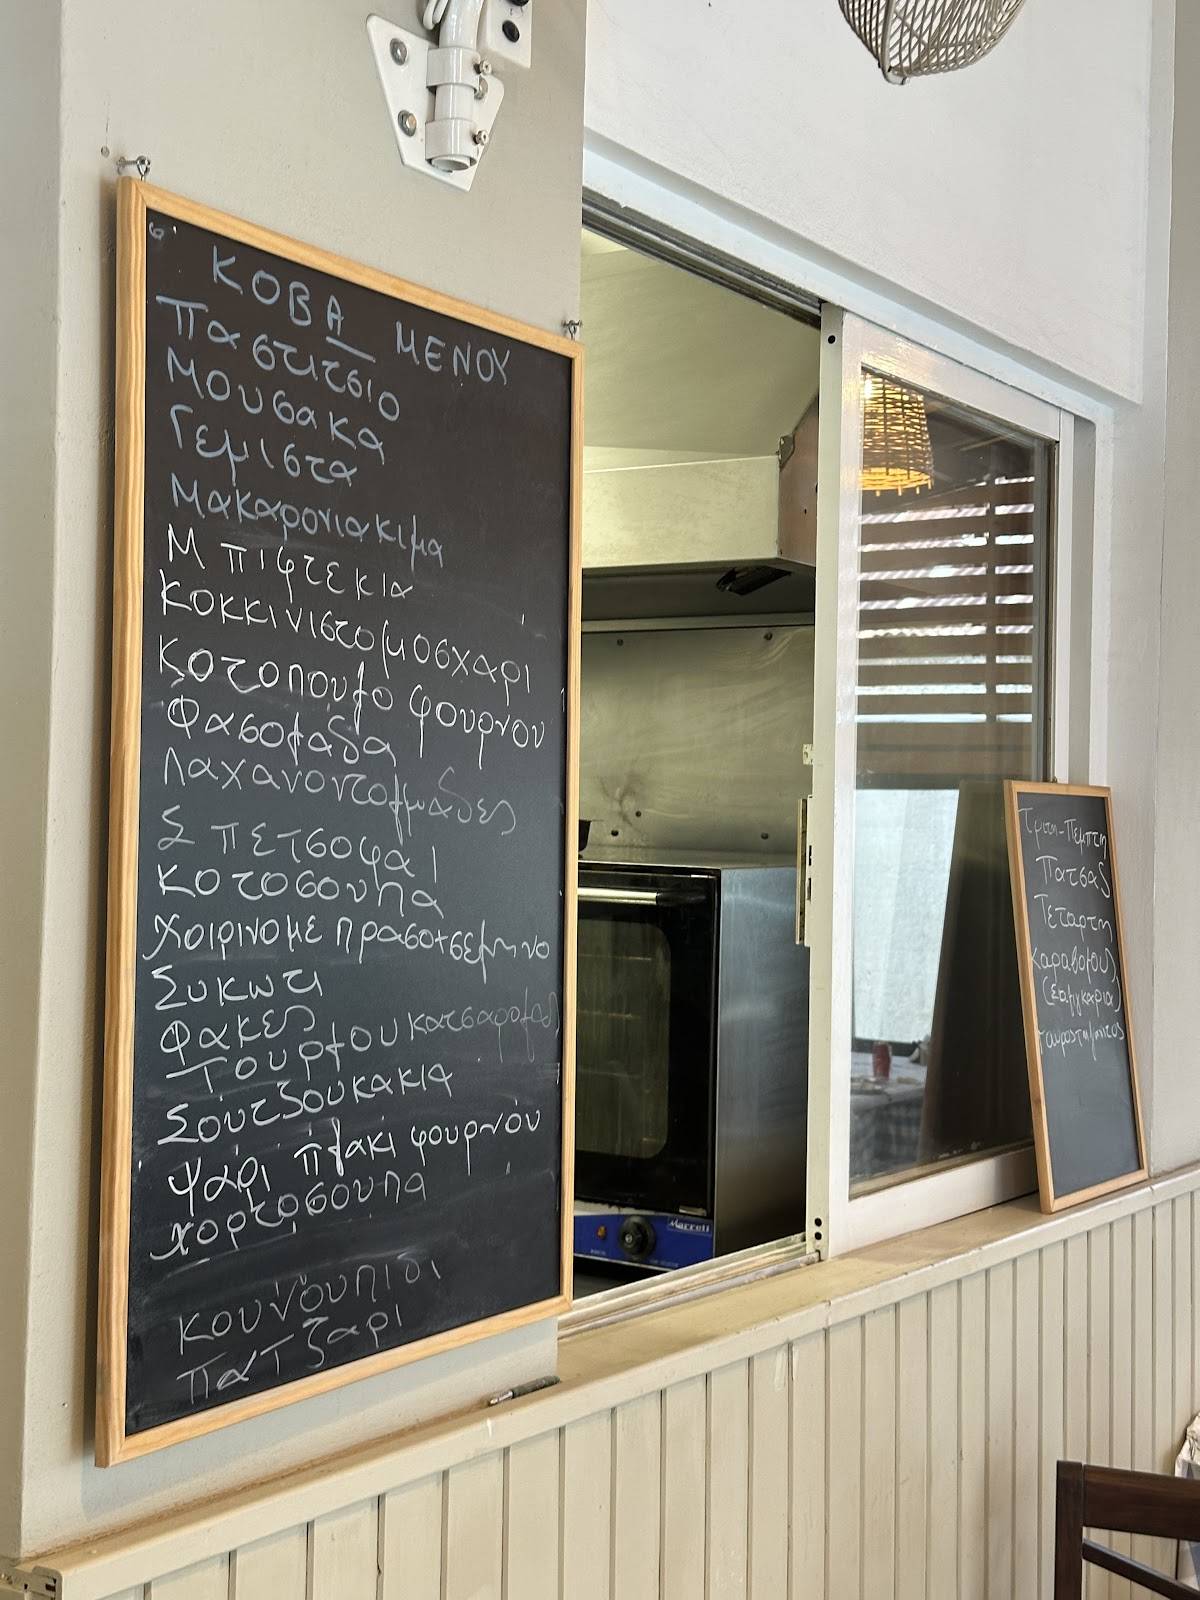 ΚΟΒΑ ΜΕΝΟΥ
Παστιτσιο
Μουσακα
Γεμιστα
Μακαρονιακιμα
Μπιφτεκια
Κοκκινιστο μοσχαρι
Κοτοπουλο φουρνου
Φασολαδα
Λαχανοντολμαδες
Σπετσοφαι
Κοτοσουπα
Χοιρινο με πρασο+σελινο
Συκωτι
Φακες
Τουρλου κατσαρολας
Σουτζουκακια
Ψάρι πλακι φουρνου
Χορτοσουπα
κουνουπιδι
πατζαρι
Marreli
Τριτη-Πεμπτη
Πατσας
Τεταρτη
καραβολους
(σαλιγκαρια)